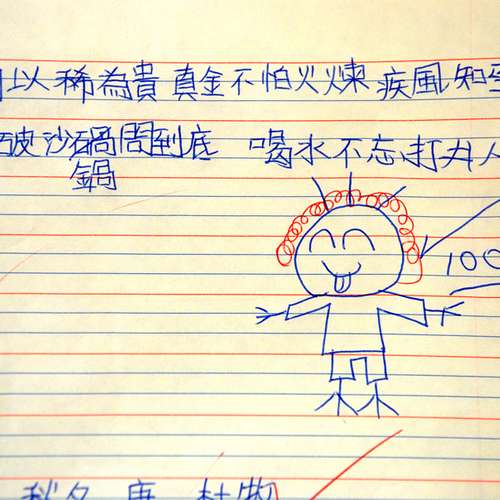 以稀為貴 真金不怕火煉 疾風知
破沙鍋問到底 喝水不忘打井人
鍋
100
秋夕 唐 杜牧